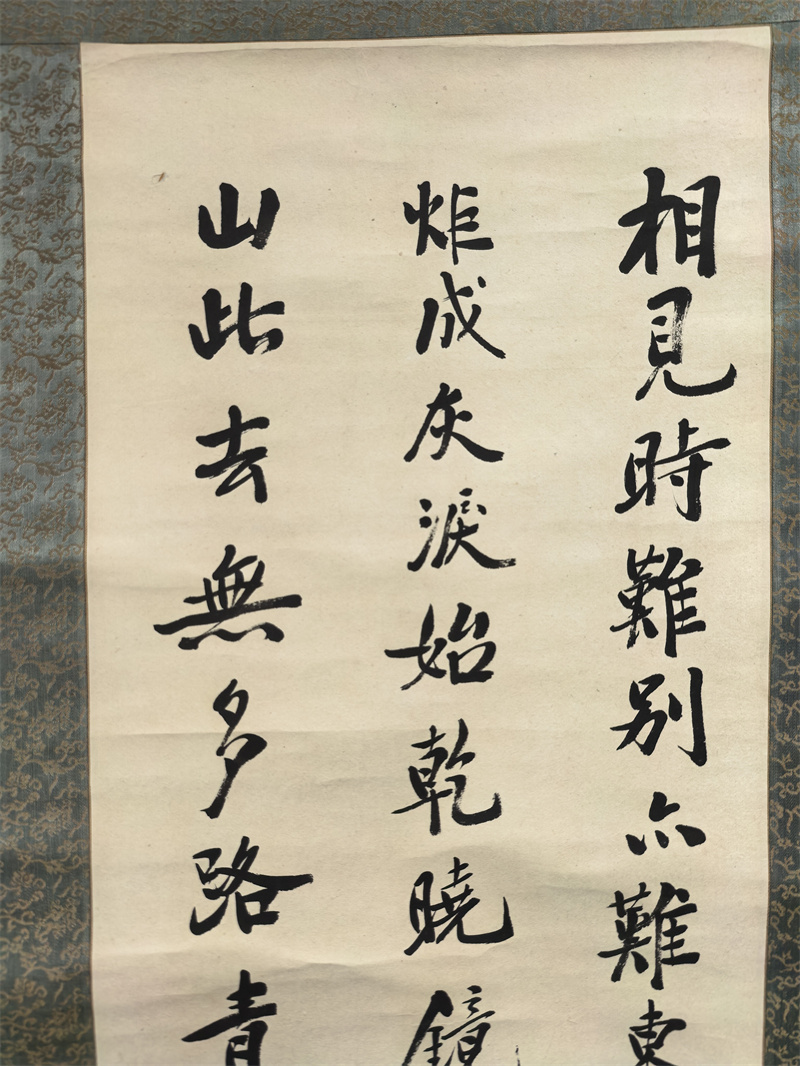 相見時難別亦難東
炬成灰淚始乾曉鏡
山此去無多路青